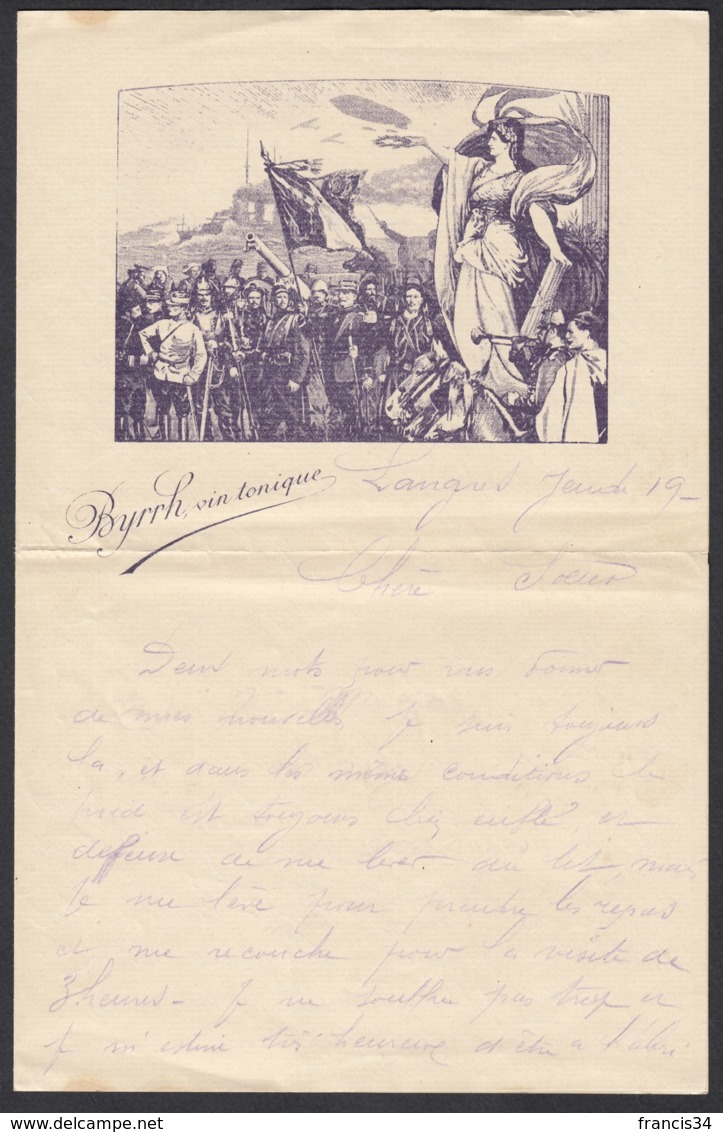 Byrrh, vin tonique
Langres Jeudi 19-
Chère Soeur
Deux mots pour vous donner
de mes nouvelles, Je suis toujours
la, et dans les même conditions, le
pied est toujours bien enflé, et
défense de me lever du lit, mais
Je me lève pour prendre les repas
et me recouche pour la visite de
3 heures - J ne souffre pas trop et
J m'estime très heureux d'être a l'abri
francis34